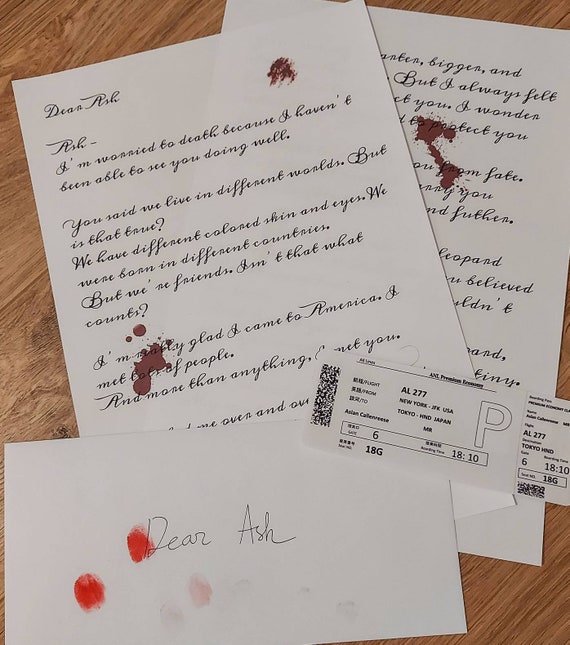 Dear Ash
Ash -
I'm worried to death because I haven't
been able to see you doing well.
You said we live in different worlds. But
is that true?
We have different colored skin and eyes. We
were born in different countries.
But we're friends. Isn't that what
counts?
I'm really glad I came to America. I
met lots of people.
And more than anything, I met you.
me over and over
arter, bigger, and
But I always felt
ct you. I wonder
to protect you
you from fate.
arry you
and futher.
leopard
u believed
uldn't
ard,
tiny.
ANL Premium Economy
航班/FLIGHT AL 277
NEW YORK - JFK USA
TOKYO - HND JAPAN
Asian Callenreese MR
GATE 6 Boarding Time 18:10
Seat NO. 18G
P
Boarding Pass
PREMIUM ECONOMY CLA
Asian Callenreese MR
Flight
AL 277
Destination
TOKYO HND
Gate Boarding Time
6 18:10
Seat NO. 18G
Dear Ash